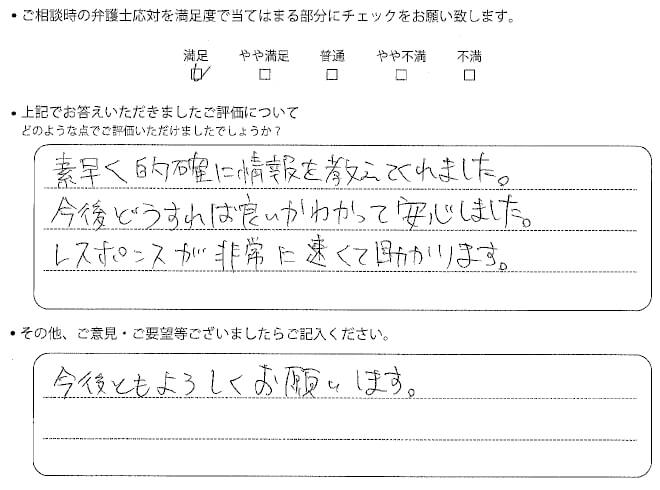 • ご相談時の弁護士応対を満足度で当てはまる部分にチェックをお願い致します。
満足 やや満足 普通 やや不満 不満
☑ □ □ □ □
• 上記でお答えいただきましたご評価について
どのような点でご評価いただけましたでしょうか？
素早く的確に情報を教えてくれました。
今後どうすれば良いかわかって安心しました。
レスポンスが非常に速くて助かります。
• その他、ご意見・ご要望等ございましたらご記入ください。
今後ともよろしくお願いします。